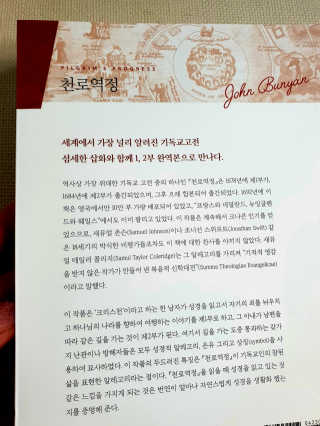 PILGRIM'S PROGRESS
천로역정
John Bunyan
세계에서 가장 널리 알려진 기독교고전
섬세한 삽화와 함께 1, 2부 완역본으로 만나다.
역사상 가장 위대한 기독교 고전 중의 하나인 『천로역정』은 1678년에 제1부가,
1684년에 제2부가 출간되었으며, 그후 으레 합본되어 출간되었다. 1692년에 이
책은 영국에서만 10만 부 가량 배포되어 있었고, "프랑스와 네덜란드, 뉴잉글랜
드와 웨일스"에서도 이미 팔리고 있었다. 이 작품은 계속해서 크나큰 인기를 얻
었으므로, 새뮤얼 존슨(Samuel Johnson)이나 조너선 스위프트(Jonathan Swift) 같
은 18세기의 박식한 비평가들조차도 이 책에 대한 찬사를 아끼지 않았다. 새뮤
얼 테일러 콜리지(Samul Taylor Coleridge)는 그 알레고리를 가리켜 "기적적 영감
을 받지 않은 작가가 만들어 낸 복음적 신학대전"(Summa Theologiae Evangelicae)
이라고 말했다.
이 작품은 '크리스천'이라고 하는 한 남자가 성경을 읽고서 자기의 죄를 뉘우치
고 하나님의 나라를 향하여 여행하는 이야기를 제1부로 하고, 그 아내가 남편을
따라 같은 길을 가는 것이 제2부가 된다. 여기서 길을 가는 도중 통과하는 갖가
지 난관이나 방해자들은 모두 성경적 알레고리, 은유 그리고 상징(symbol)을 사
용하여 묘사하였다. 이 작품의 두드러진 특징은 『천로역정』이 기독교인의 참된
삶을 표현한 알레고리라는 점이다. 『천로역정』을 읽을 때 성경을 읽고 있는 것
같은 느낌을 가지게 되는 것은 번연이 얼마나 자연스럽게 성경을 생활화 했는
지를 증명해 준다.